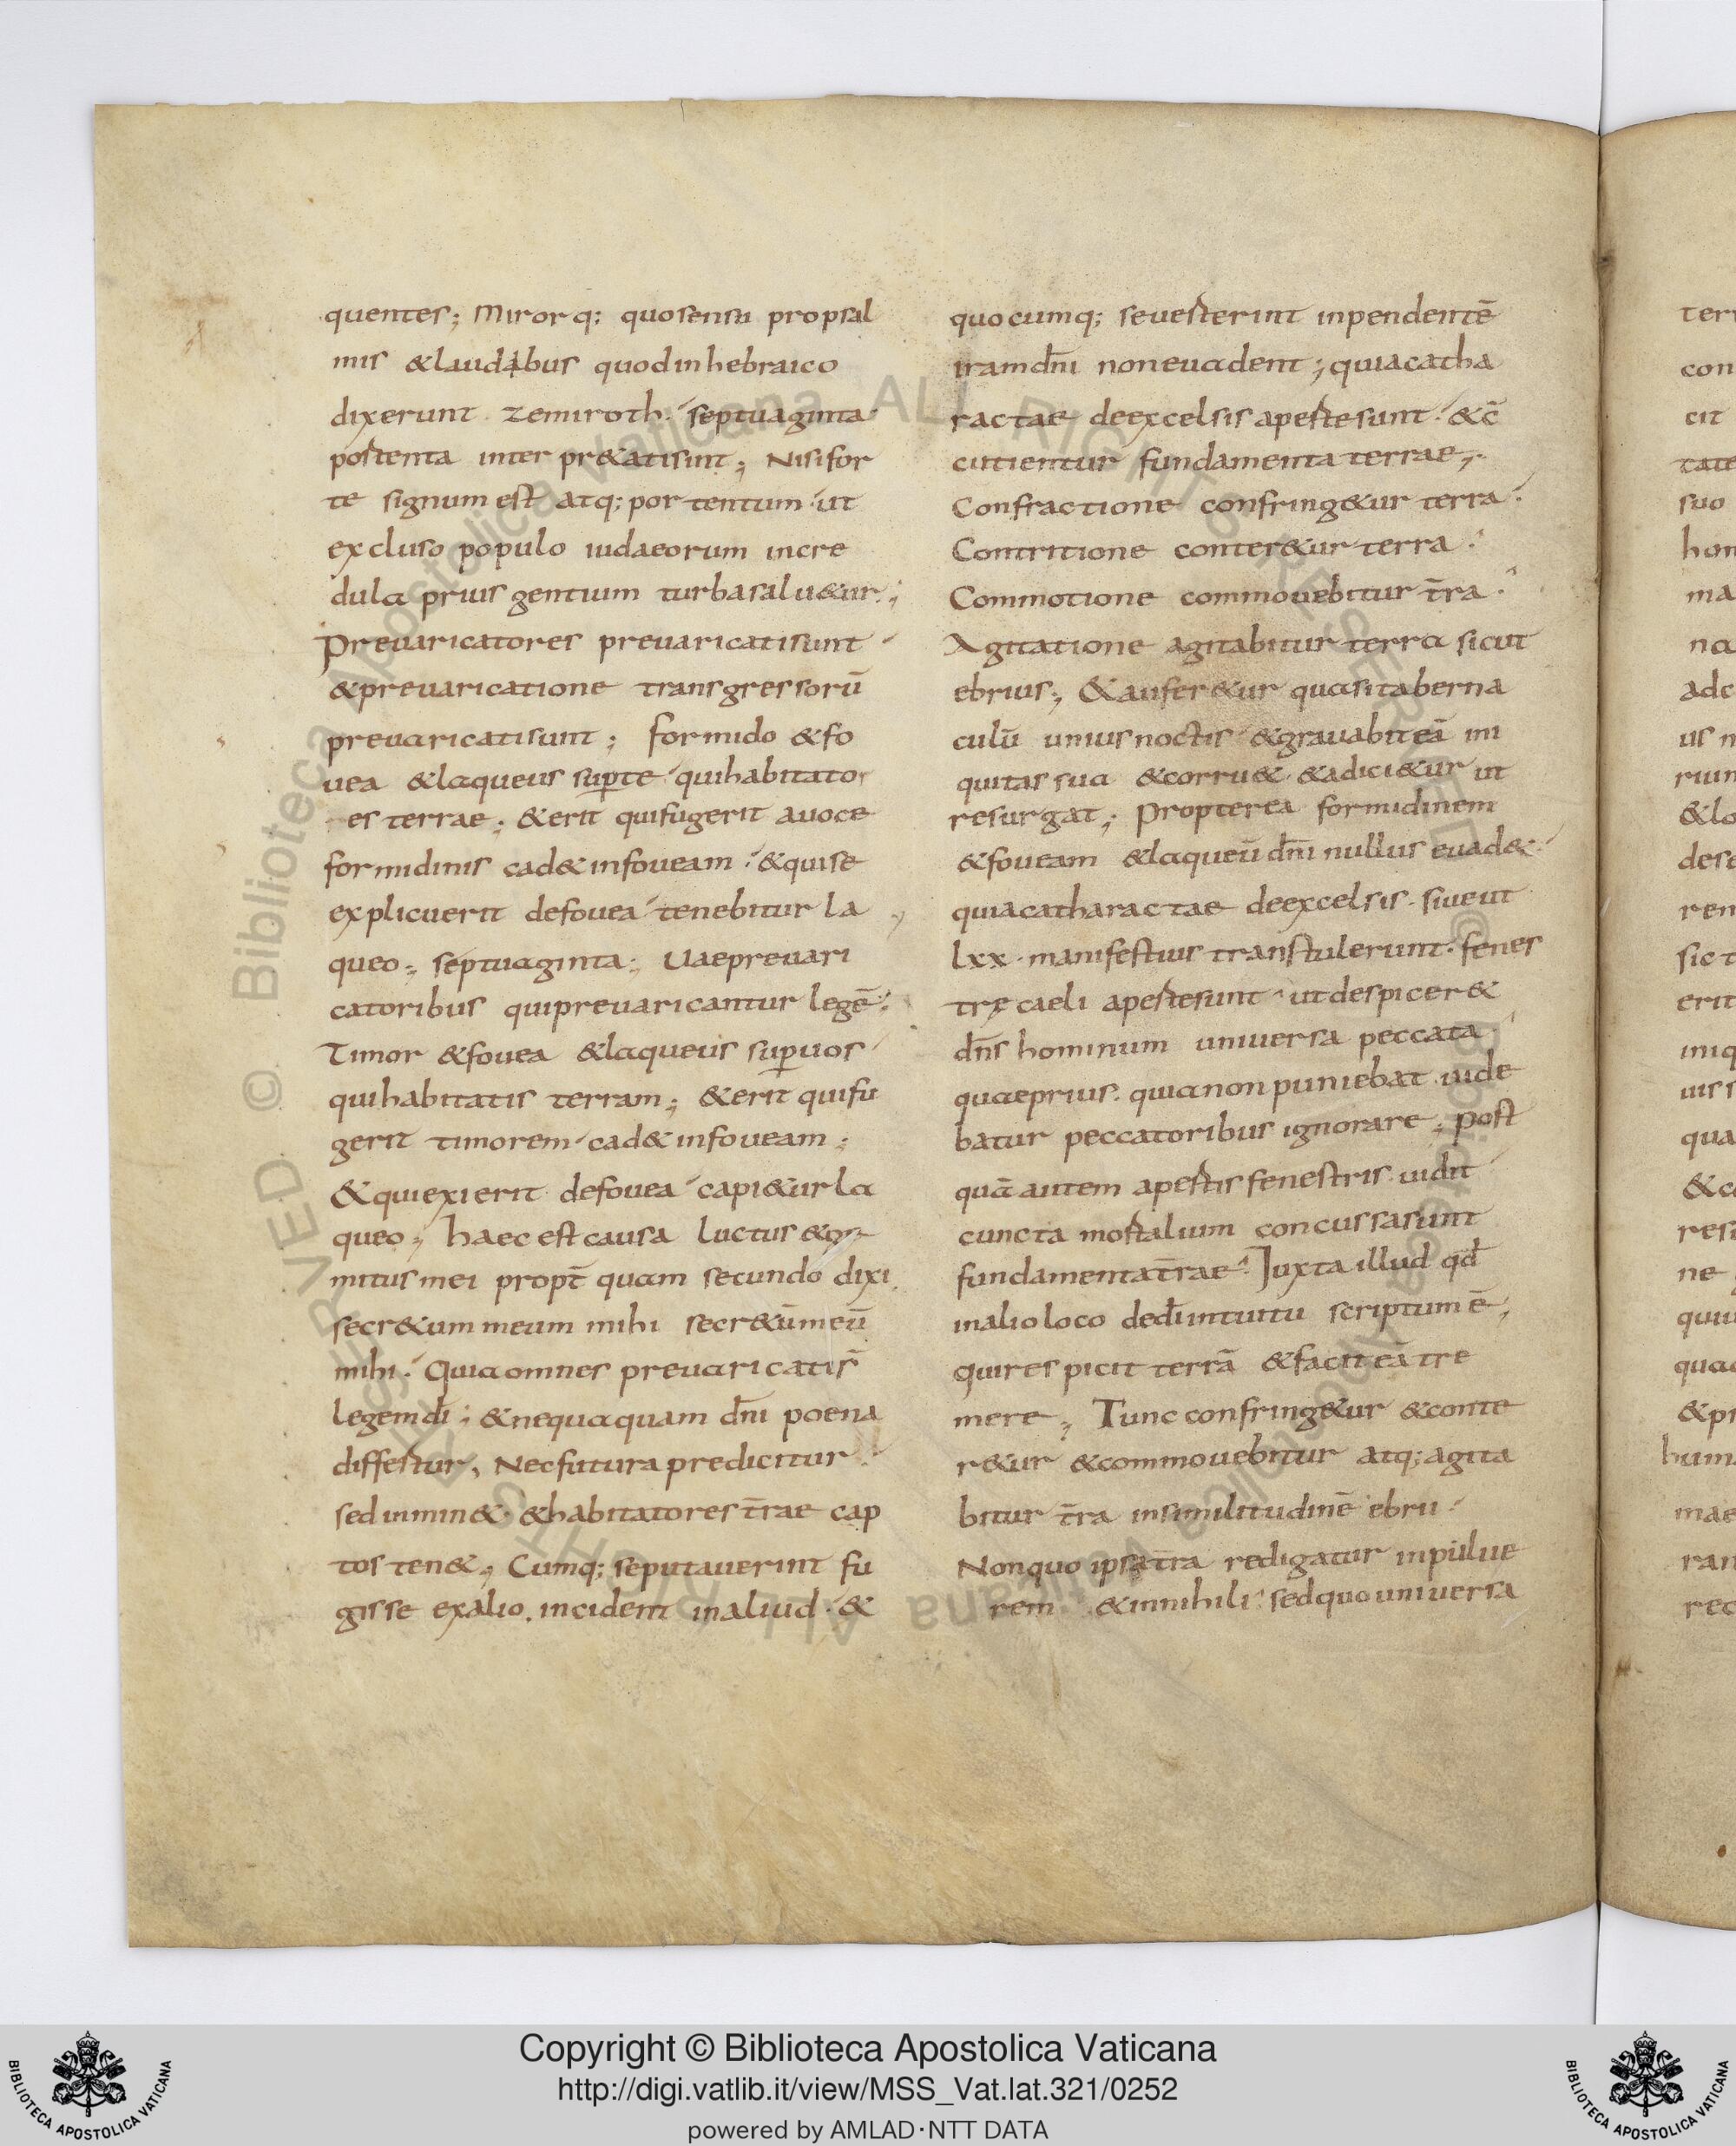 quentes; Mirorq; quosensu propsal
mis &laudibus quodinhebraico
dixerunt zemiroth. septuaginta
portenta inter pr&atisunt; Nisifor
te signum est atq; portentum ut
excluso populo iudaeorum incre
dula prius gentium turbasalu&ur;
Preuaricatores preuaricatisunt
&preuaricatione transgressorū
preuaricatisunt; formido &fo
uea &laqueus sup te quihabitator
es terrae; &erit quifugerit auoce
formidinis cad& infoueam. &quise
explicuerit defouea tenebitur la
queo; septuaginta; Uaepreuari
catoribus quipreuaricantur legē.
Timor &fouea &laqueus sup uos
quihabitatis terram; &erit quifu
gerit timorem cad& infoueam;
&quiexierit defouea capi&ur la
queo; haec est causa luctus
mitus mei propt̄ quam secundo dixi.
secr&um meum mihi secr&ūmeū
mihi. Quia omnes preuaricatis̄
legem dī; &nequaquam dn̄i poena
differtur, Necfutura predicitur
sed inmin& &habitatores tr̄ae cap
tos ten&; Cumq; seputauerint fu
gisse exalio, incident inaliud. &
quocumq; seuerterint inpendentē
iram dn̄i noneuadent; quiacatha
ractae deexcelsis apertesunt. &c̄
cutientur fundamenta terrae;
Confractione confring&ur terra.
Contritione conter&ur terra.
Commotione commouebitur tr̄a.
Agitatione agitabitur terra sicut
ebrius; &aufer&ur quasitaberna
culū unius noctis &grauabit eā ini
quitas sua &corru& &adici&ur ut
resurgat; Propterea formidinem
&foueam &laqueū dn̄i nullus euad&
quiacatharactae deexcelsis. siueut
lxx. manifestius transtulerunt. fenes
trę caeli apertesunt ut despicer&
dn̄s hominum uniuersa peccata.
quaeprius. quia non puniebat uide
batur peccatoribus ignorare; post
quā autem apertis fenestris uidit
cuncta mortalium concussasunt
fundamenta tr̄ae. Juxta illud qd̄
inalio loco dedī intuitu scriptum ē,
Qui respicit terrā &facit eā tre
mere; Tunc confring&ur &conte
r&ur &commouebitur atq; agita
bitur tr̄a insimilitudinē ebrii.
Nonquo ipsa tr̄a redigatur inpulue
rem &innihili. sedquo uniuersa
Copyright © Biblioteca Apostolica Vaticana
http://digi.vatlib.it/view/MSS_Vat.lat.321/0252
powered by AMLAD·NTT DATA
BIBLIOTECA APOSTOLICA VATICANA
BIBLIOTECA APOSTOLICA VATICANA